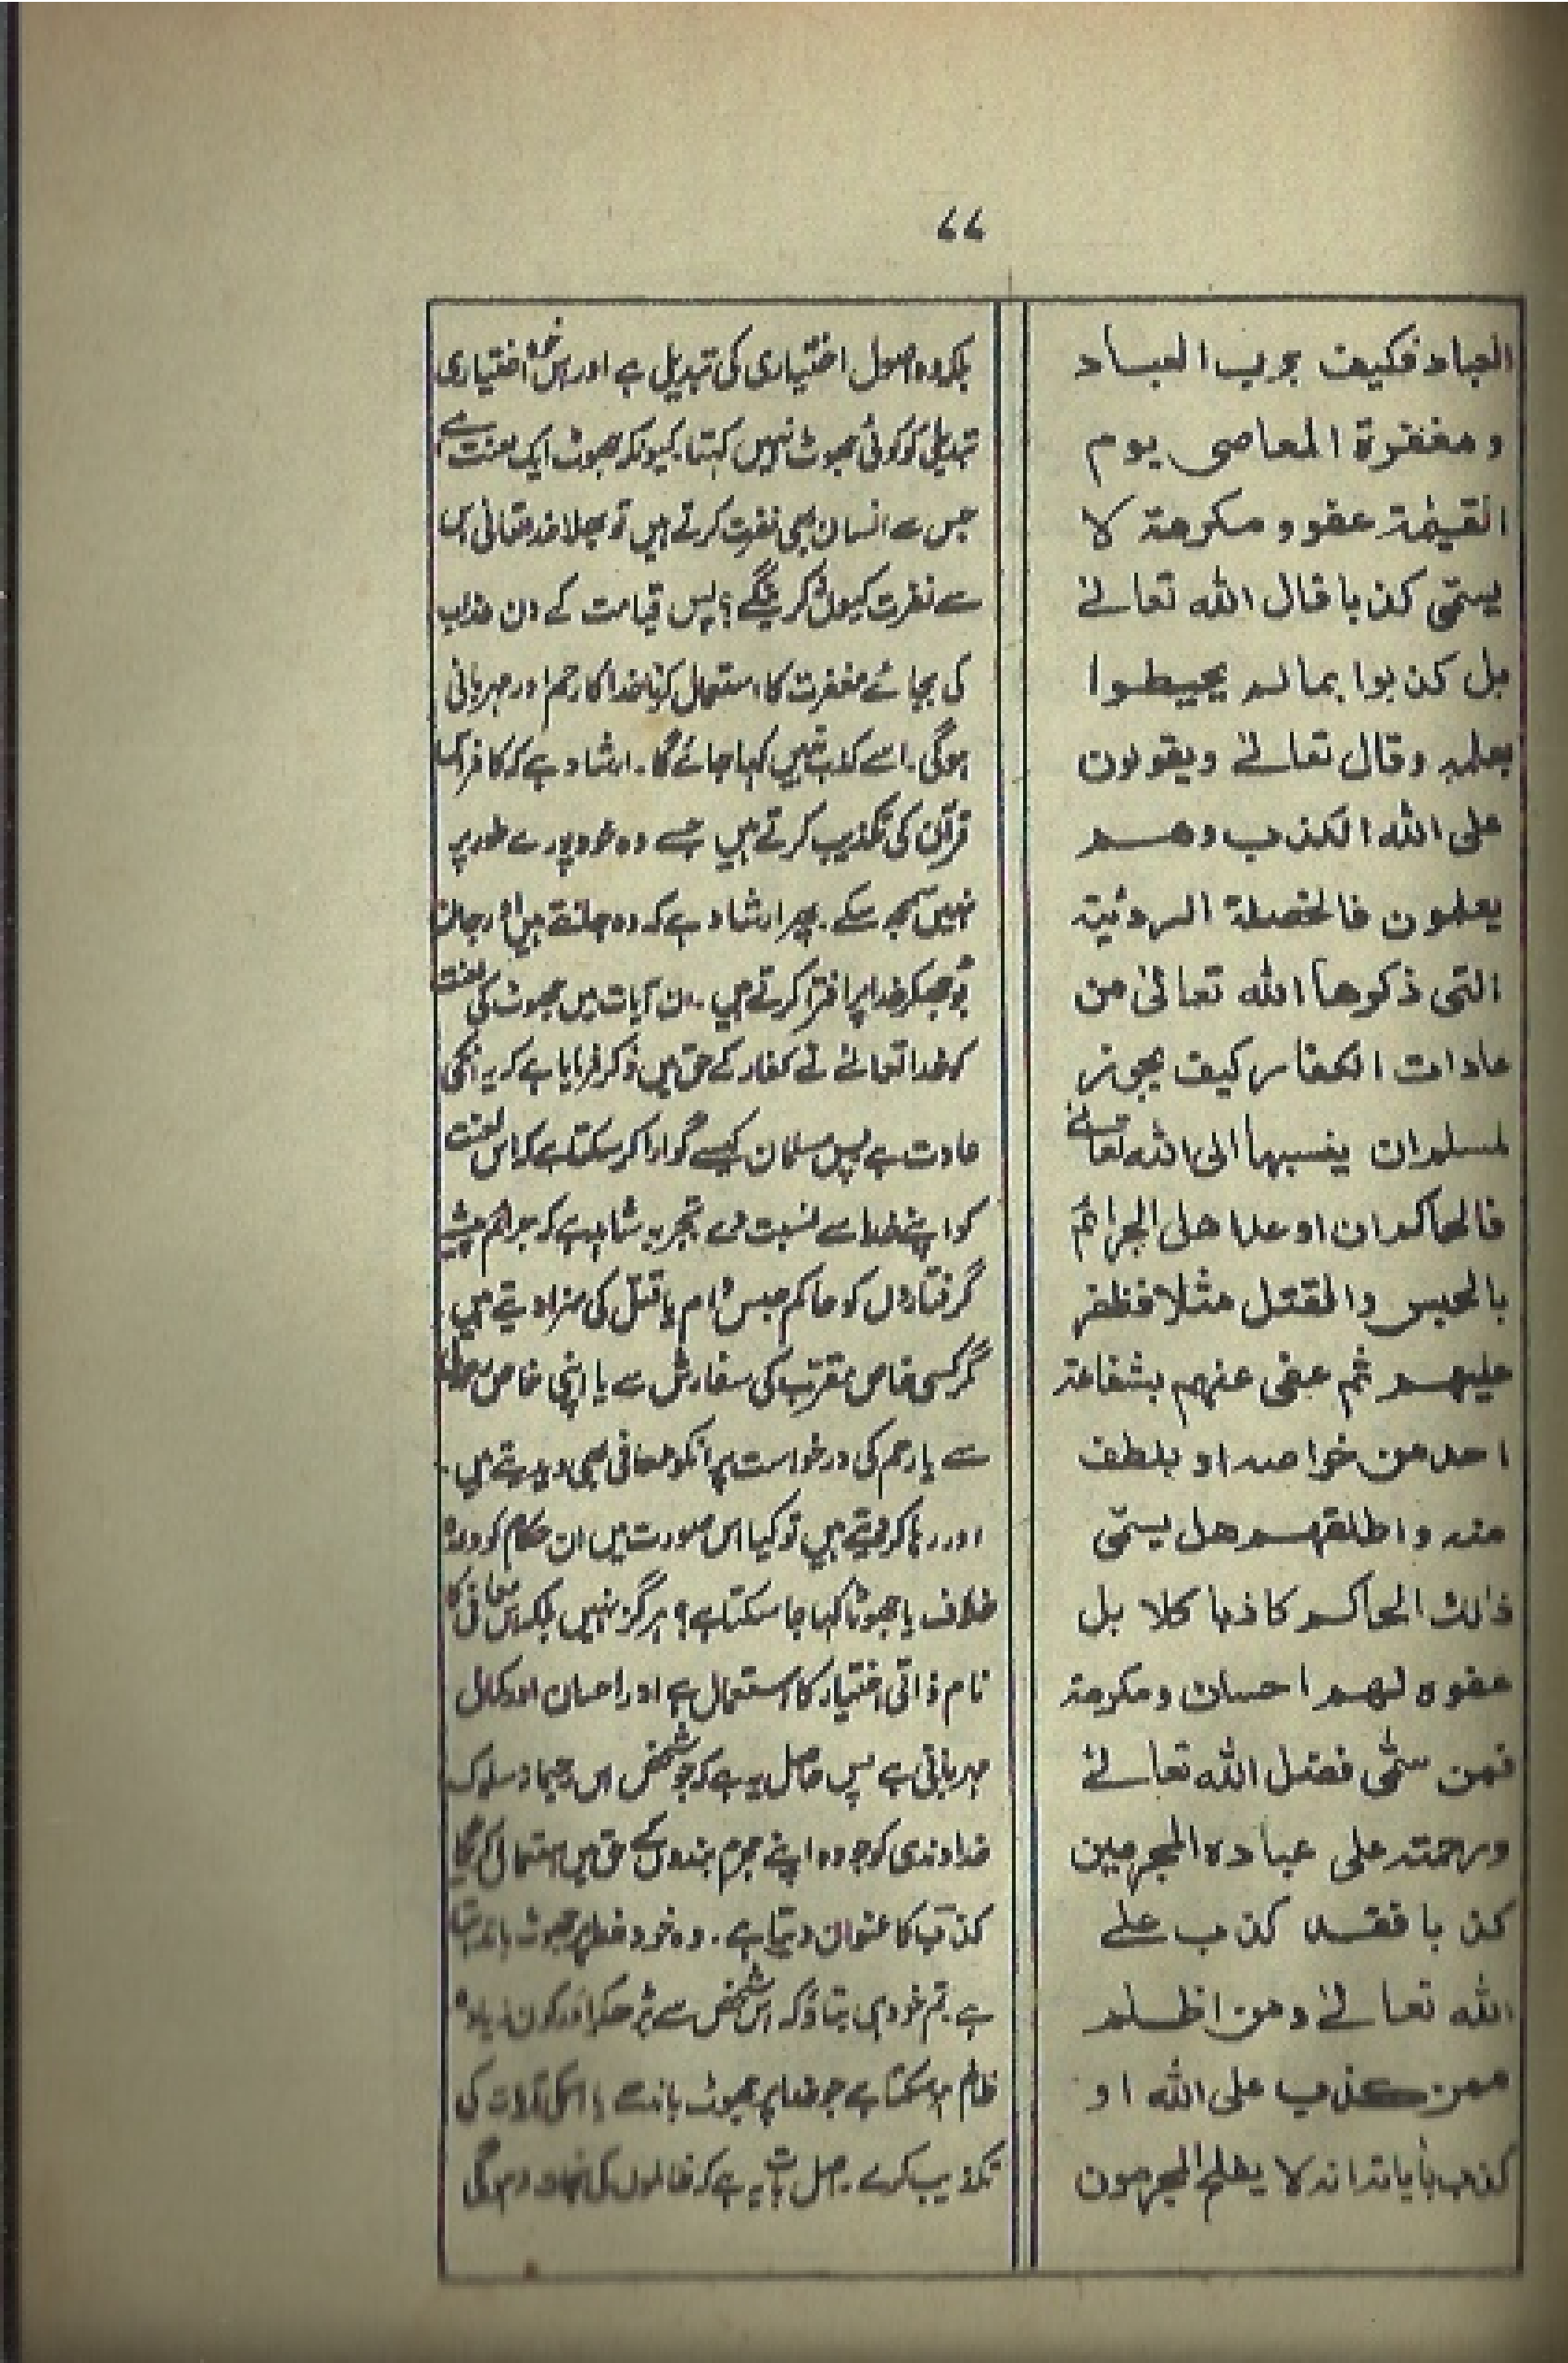 ۷۷
العباد فكيف برب العباد
و مغفرة المعاصى يوم
القيٰمة عفو و مكرمة لا
يسمّى كذبا قال الله تعالےٰ
بل كذبوا بما لم يحيطوا
بعلمه وقال تعالےٰ ويقولون
على الله الكذب وهم
يعلمون فالخصلة الردئية
التى ذكرها الله تعالىٰ من
عادات الكفار كيف يجوز
لمسلم ان ينسبها الى الله تعالےٰ
فالحاكم ان اوعد اهل الجرائم
بالحبس والقتل مثلا فظفر
عليهم ثم عفى عنهم بشفاعة
احد من خواصه او بلطف
منه و اطلقهم هل يسمّى
ذٰلك الحاكم كاذبا كلا بل
عفوه لهم احسان و مكرمة
فمن سمّٰى فضل الله تعالےٰ
ورحمته على عباده المجرمين
كذبا فقد كذب علےٰ
الله تعالےٰ ومن اظلم
ممن كذب على الله او
كذب بأياته انه لا يفلح المجرمون
بلکہ وہ اصول اختیاری کی تبدیلی ہے اور اس خود اختیاری
تبدیلی کو کوئی جھوٹ نہیں کہتا۔ کیونکہ جھوٹ ایک لعنت ہے
جس سے انسان بھی نفرت کرتے ہیں تو بھلا خدا تعالیٰ اس
سے نفرت کیوں نہ کرینگے؟ پس قیامت کے دن عذاب
کی بجائے مغفرت کا استعمال کرنا خدا کا رحم اور مہربانی
ہوگی۔ اسے کذب نہیں کہا جائے گا۔ ارشاد ہے کہ کافر اس
قرآن کی تکذیب کرتے ہیں جسے وہ خود پورے طور پر
نہیں سمجھ سکے۔ پھر ارشاد ہے کہ وہ جانتے ہیں اور جان
بوجھکر خدا پر افترا کرتے ہیں۔ ان آیات میں جھوٹ کی لعنت
کو خدا تعالےٰ نے کفار کے حق میں ذکر فرمایا ہے کہ یہ انکی
عادت ہے پس مسلمان کیسے گوارا کر سکتا ہے کہ اس لعنت
کو اپنے خدا سے نسبت دے تجربہ شاہد ہے کہ جرائم پیشہ
گرفتاروں کو حاکم حبس دوام یا قتل کی سزا دیتے ہیں۔
مگر کسی خاص مقرّب کی سفارش سے یا اپنی خاص
سے یا رحم کی درخواست پر انکو معافی بھی دیدیتے ہیں۔
اور رہا کر دیتے ہیں تو کیا اس صورت میں ان حکام کو وعدہ
خلاف یا جھوٹا کہا جا سکتا ہے؟ ہرگز نہیں بلکہ اس معافی کا
نام ذاتی اختیار کا استعمال ہے اور احسان اور کمال
مہربانی ہے پس حاصل یہ ہے کہ جو شخص اس رحیمانہ سلوک
خداوندی کو جو وہ اپنے مجرم بندوں کے حق میں استعمال کریگا
کذب کا عنوان دیتا ہے۔ وہ خود خدا پر جھوٹ باندھتا
ہے۔ تم خود ہی بتاؤ کہ اس شخص سے بڑھکر اور کون زیادہ
ظالم ہو سکتا ہے جو خدا پر جھوٹ باندھے یا اسکی آیات کی
تکذیب کرے۔ اصل بات یہ ہے کہ ظالموں کی